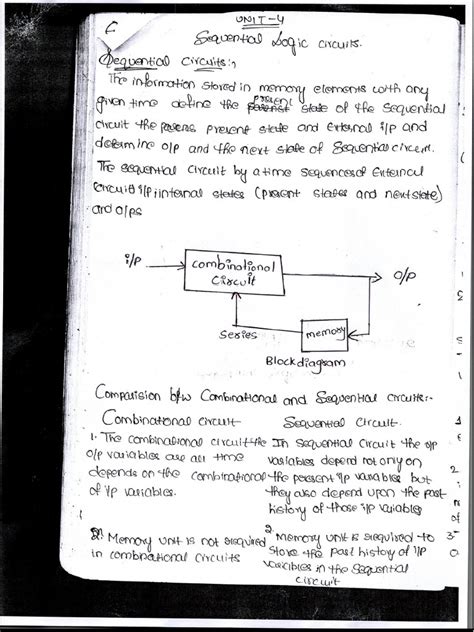 UNIT-4
Sequential Logic circuits.
Sequential circuits:-
The information stored in memory elements with any
given time define the present state of the sequential
circuit the present state and External i/p and
determine o/p and the next state of Sequential circuit.
The sequential circuit by a time sequences of External
circuit i/p internal states (present states and next state)
and o/ps
i/p
combinational
circuit
o/p
series
memory
Block diagram
Comparision b/w Combinational and Sequential circuits:-
Combinational circuit
Sequential circuit.
1. The combinational circuit the
o/p variables are all time
depends on the combinational
of i/p variables.
In sequential circuit the o/p
variables depend not only on
the present i/p variables but
they also depend upon the past
history of those i/p variables
2. Memory unit is not required
in combinational circuits
2. Memory unit is required to
store the past history of i/p
variables in the sequential
circuit